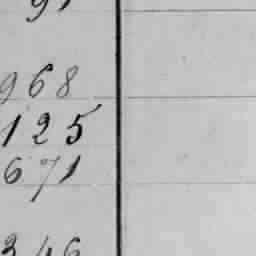 91
968
125
671
346